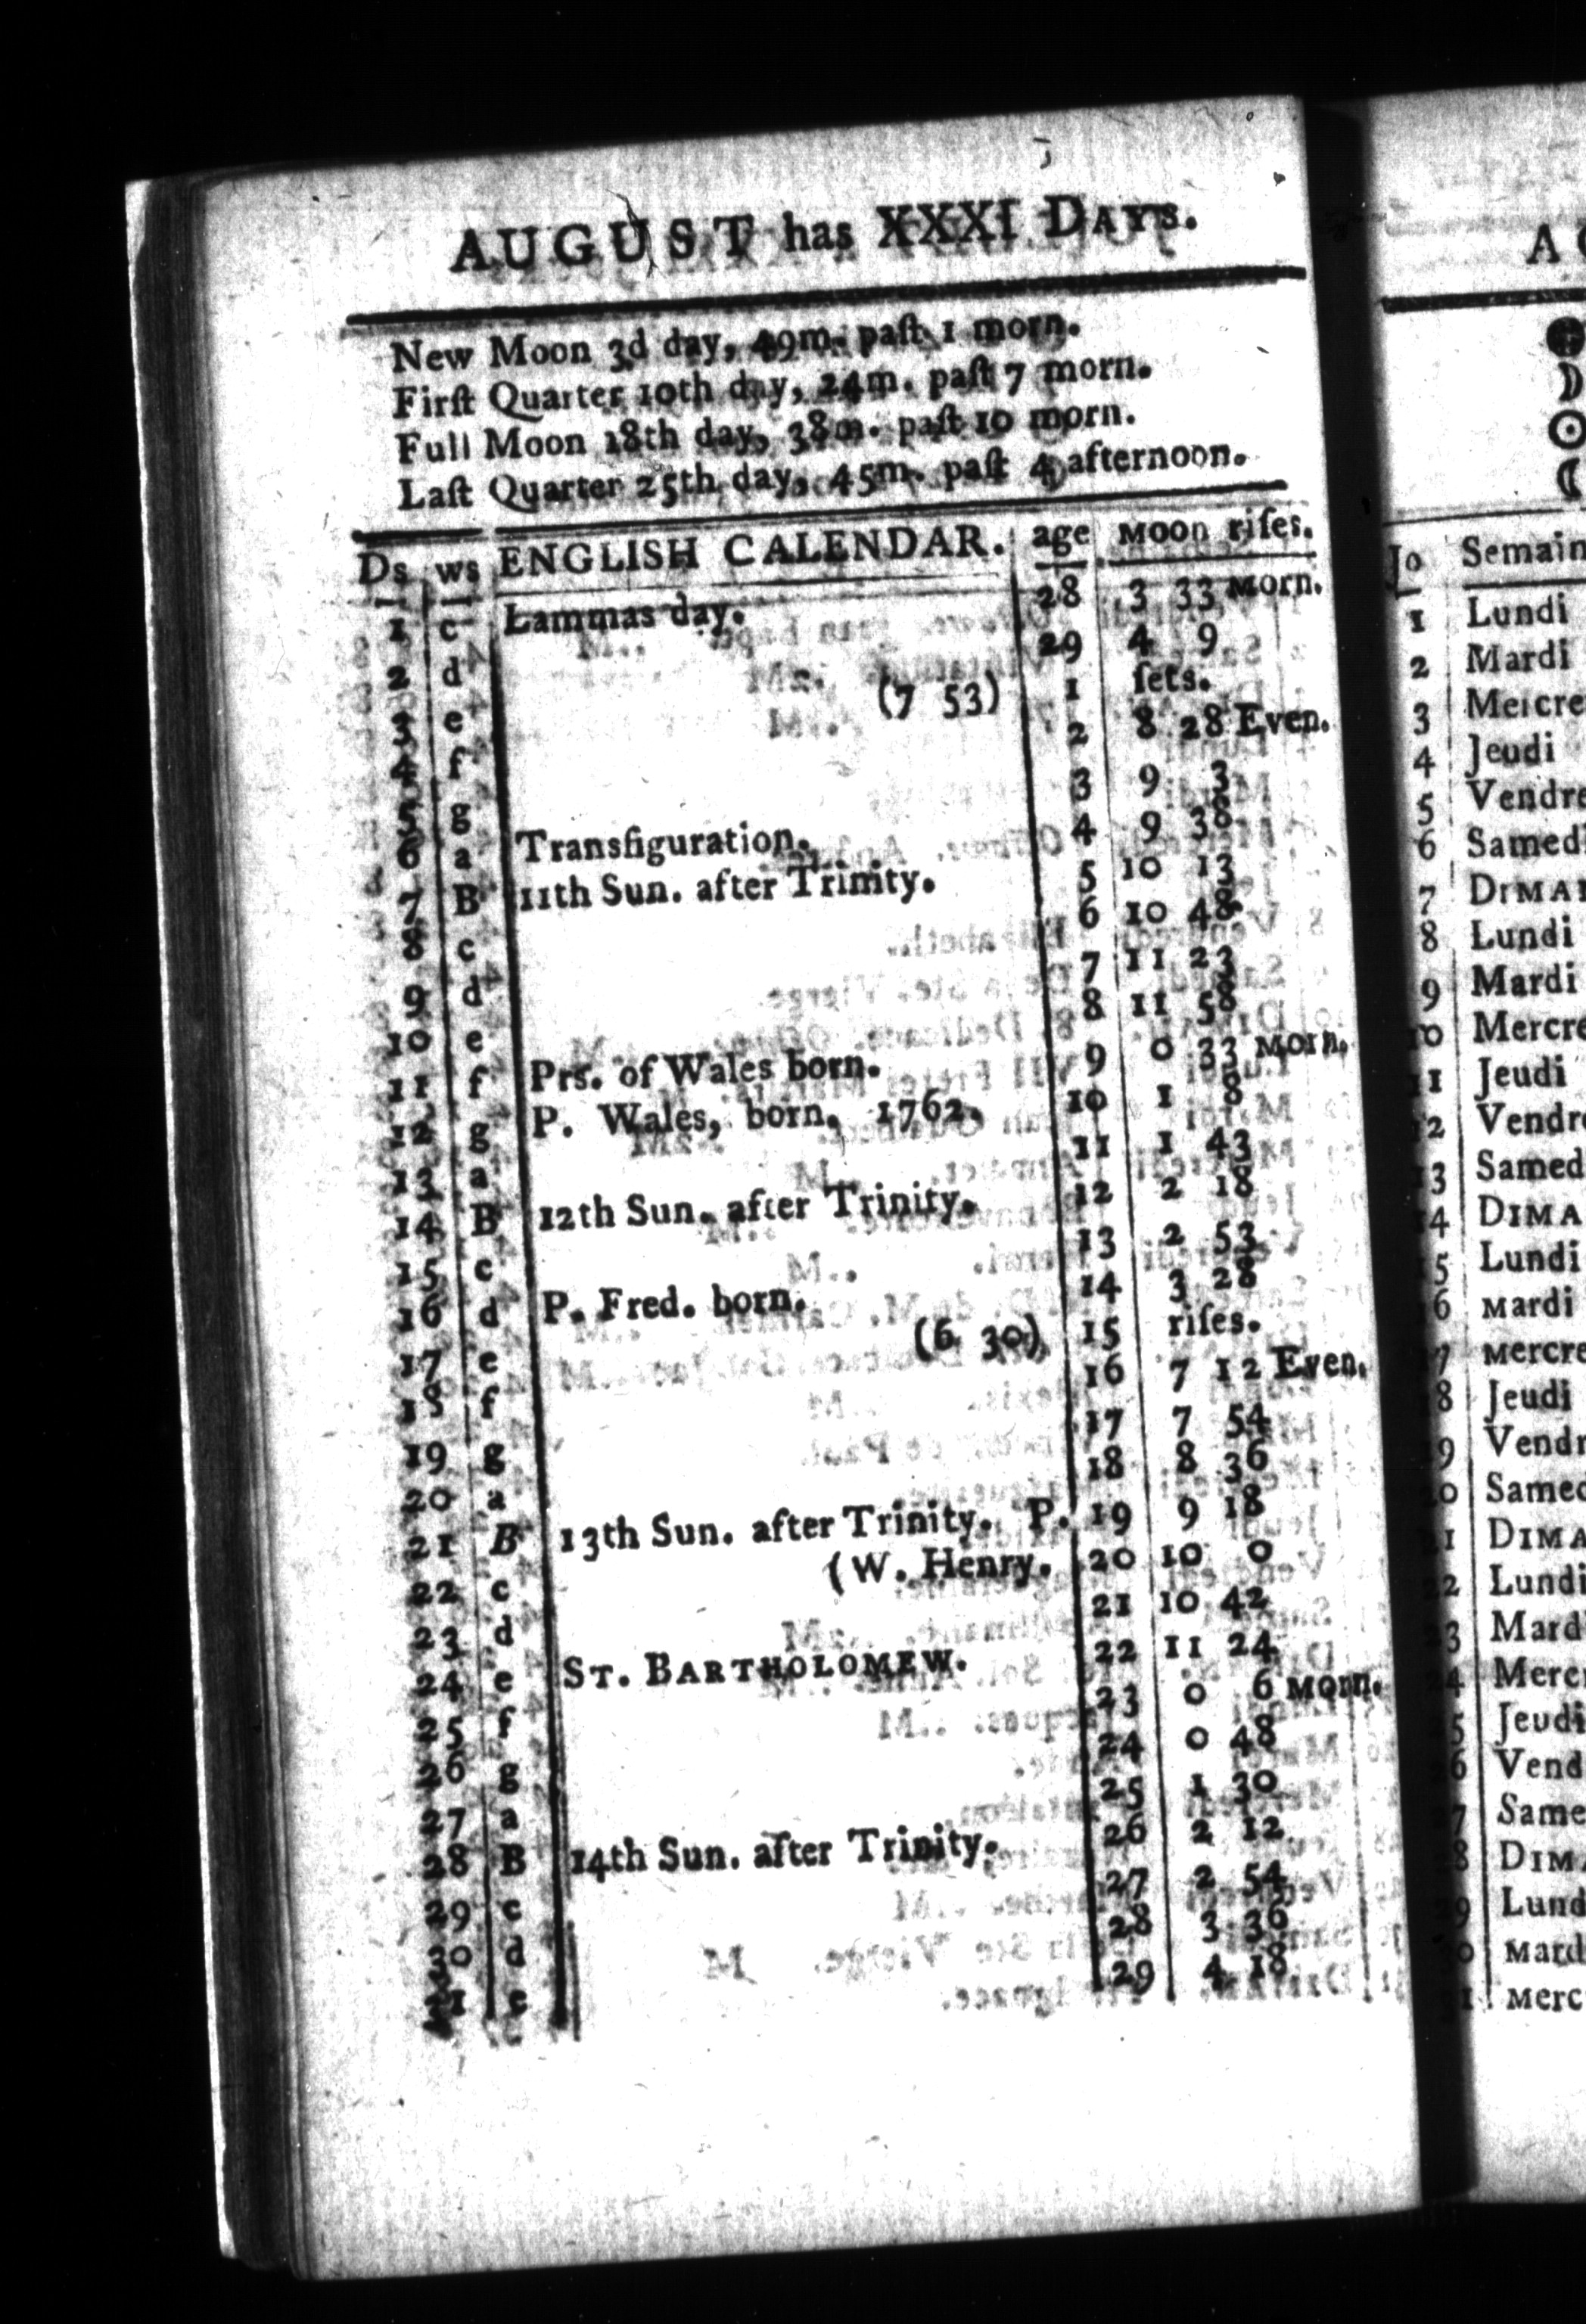 AUGUST has XXXI DAYS.
New Moon 3d day, 49m. paſt 1 morn.
Firſt Quarter 10th day, 24m. paſt 7 morn.
Full Moon 18th day, 38m. paſt 10 morn.
Laſt Quarter 25th day, 45m. paſt 4 afternoon.
Ds ws ENGLISH CALENDAR. age Moon riſes.
1 c Lammas day. 28 3 33 Morn.
2 d 29 4 9
3 e (7 53) 1 ſets.
4 f 2 8 28 Even.
5 g 3 9 3
6 a Transfiguration. 4 9 38
7 B 11th Sun. after Trinity. 5 10 13
8 c 6 10 48
9 d 7 11 23
10 e 8 11 58
11 f Prs. of Wales born. 9 0 33 Morn.
12 g P. Wales, born. 1762. 10 1 8
13 a 11 1 43
14 B 12th Sun. after Trinity. 12 2 18
15 c 13 2 53
16 d P. Fred. born. 14 3 28
17 e (6 30) 15 riſes.
18 f 16 7 12 Even.
19 g 17 7 54
20 a 18 8 36
21 B 13th Sun. after Trinity. P. 19 9 18
22 c (W. Henry. 20 10 0
23 d 21 10 42
24 e ST. BARTHOLOMEW. 22 11 24
25 f 23 0 6 Morn.
26 g 24 0 48
27 a 25 1 30
28 B 14th Sun. after Trinity. 26 2 12
29 c 27 2 54
30 d 28 3 36
31 e 29 4 18
A
Jo Semain
1 Lundi
2 Mardi
3 Mercre
4 Jeudi
5 Vendre
6 Samed
7 DIMA
8 Lundi
9 Mardi
10 Mercre
11 Jeudi
12 Vendr
13 Samed
14 DIMA
15 Lundi
6 Mardi
7 Mercre
8 Jeudi
9 Vendr
0 Samed
1 DIMA
2 Lundi
3 Mard
4 Merc
5 Jeudi
6 Vend
7 Same
8 DIM
9 Lund
0 Mard
1 Merc